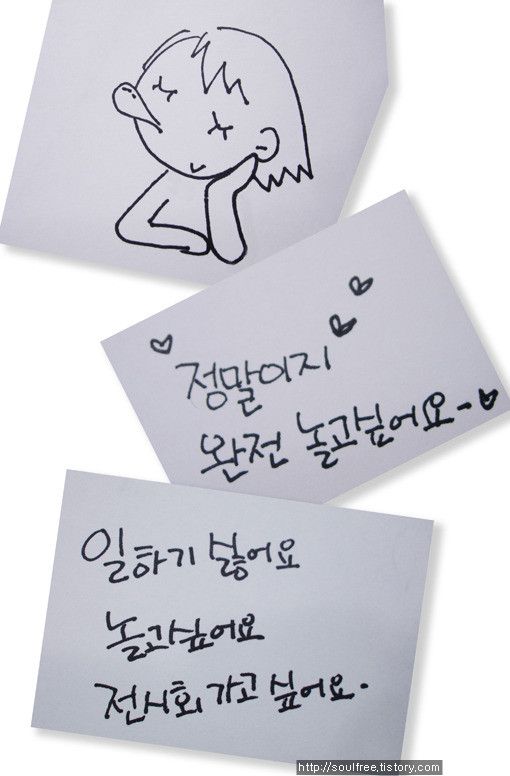 정말이지
완전 놀고싶어요~
일하기 싫어요
놀고싶어요
전시회 가고 싶어요.
http://soulfree.tistory.com